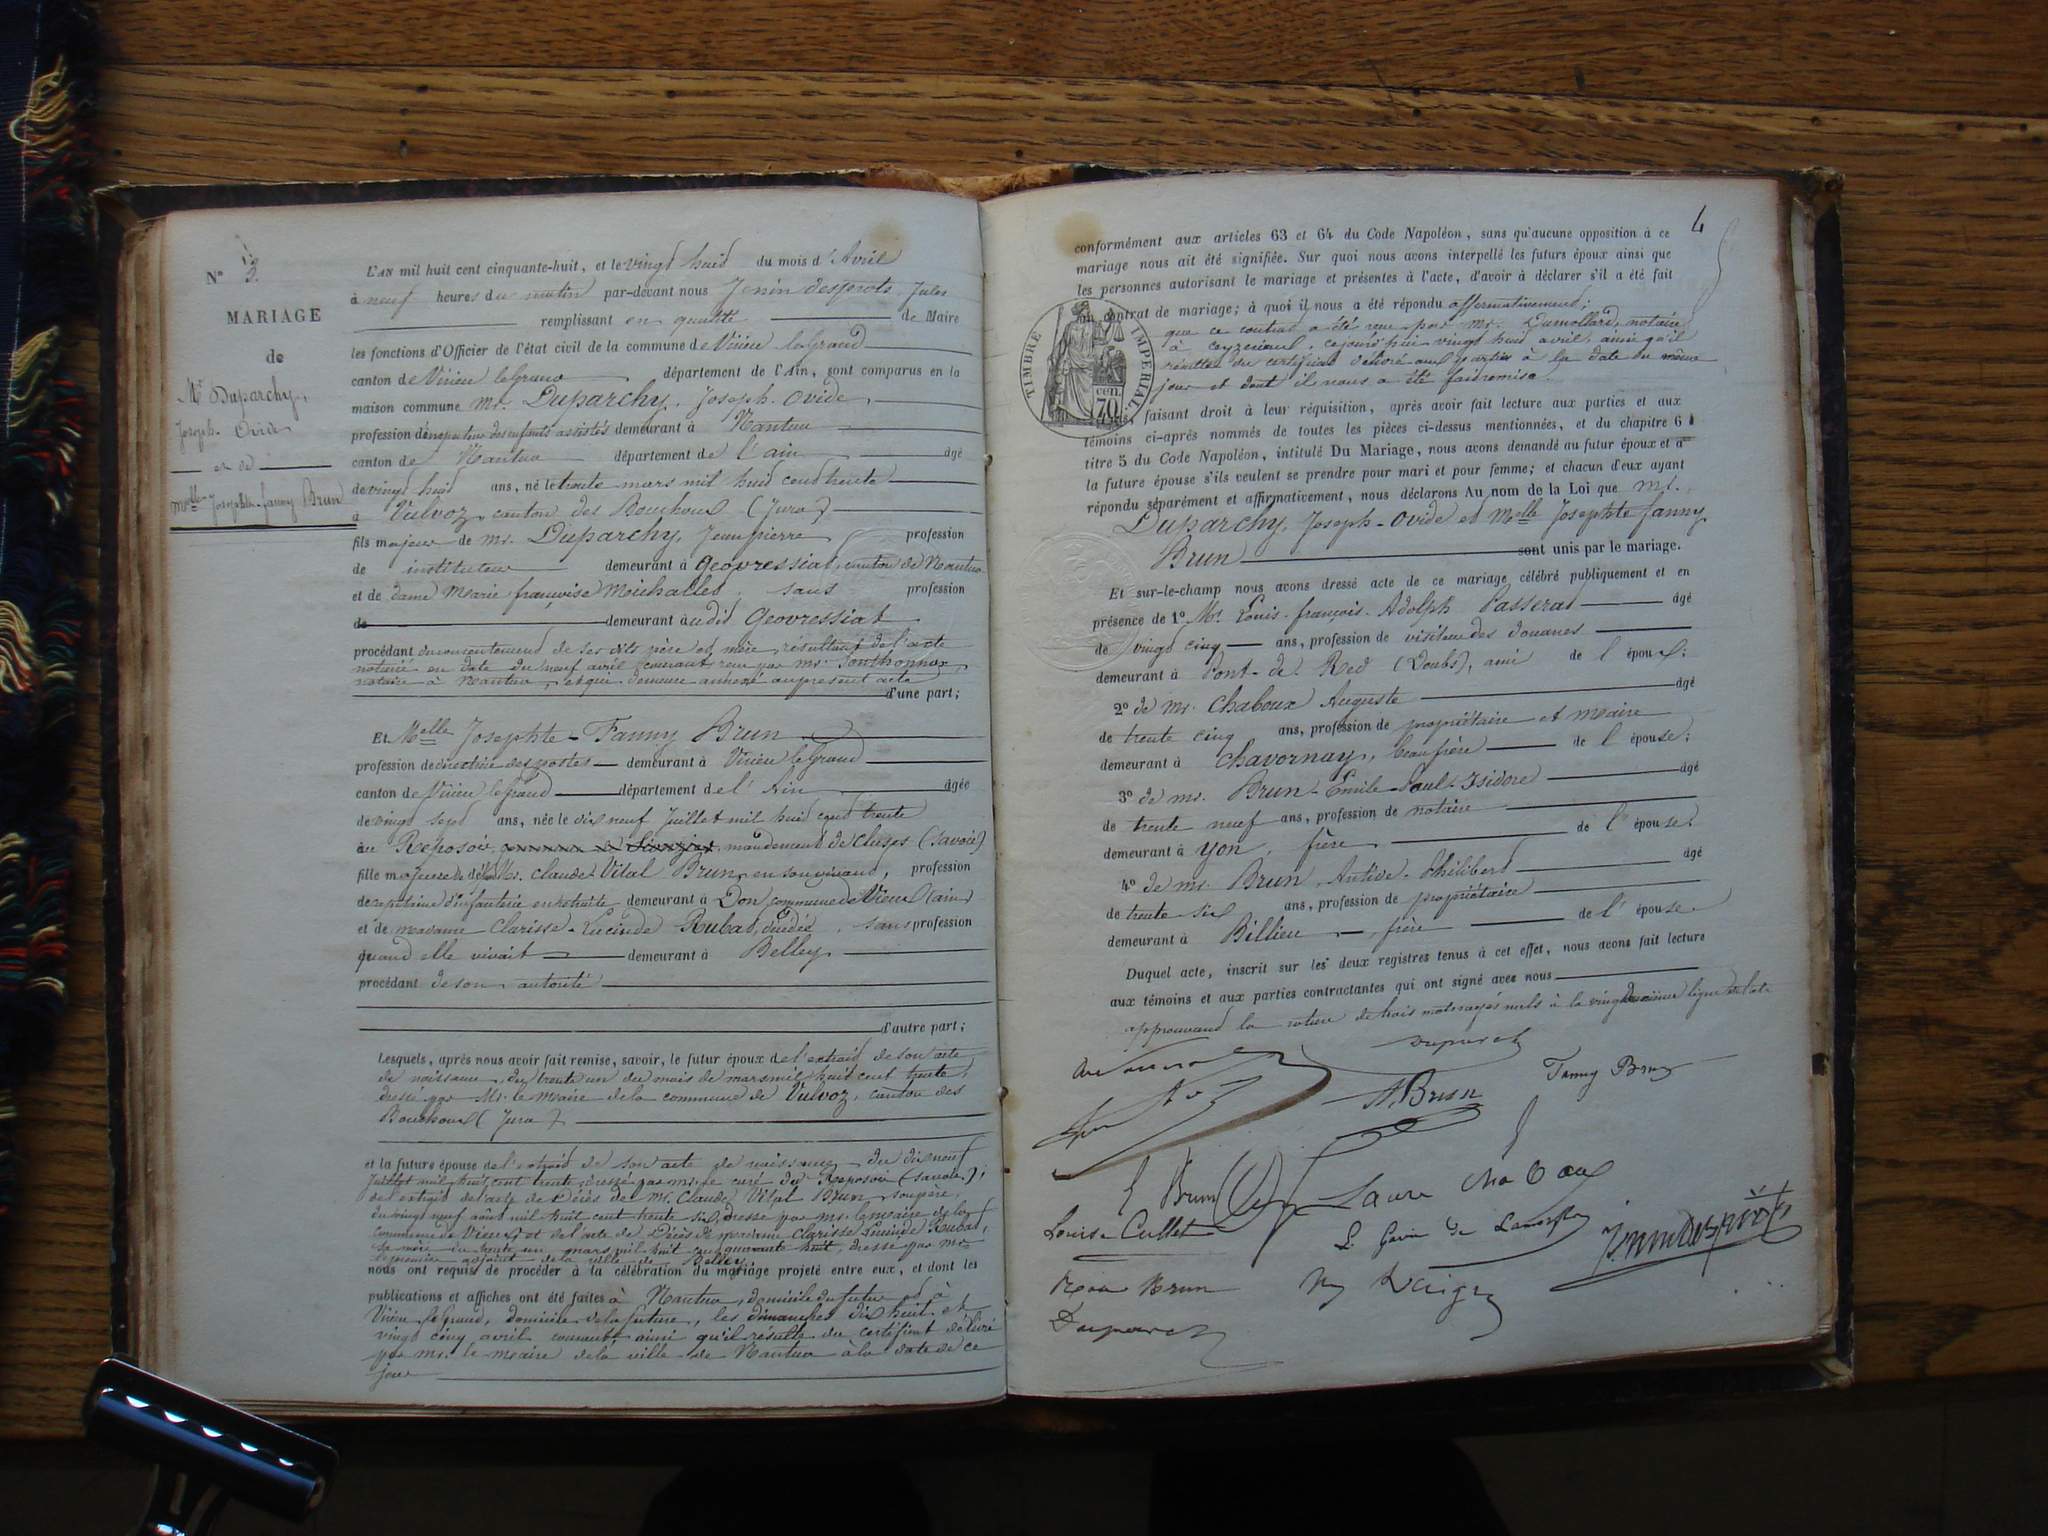 N° 3.
MARIAGE
de
Mr Duparchy,
Joseph. Ovide
et de
Melle Josephte-fanny Brun
L'AN mil huit cent cinquante-huit, et le vingt huit du mois d'Avril
à neuf heures du matin par-devant nous Jenin desprots, Jules
remplissant en qualité de Maire
les fonctions d'Officier de l'état civil de la commune de Virieu le Grand
canton de Virieu le Grand département de l'Ain, sont comparus en la
maison commune Mr. Duparchy, Joseph. Ovide,
profession d'inspecteur des enfants assistés demeurant à Nantua
canton de Nantua département de l'ain âgé
de vingt huit ans, né le trente mars mil huit cent trente
à Vulvoz, canton des Bouchoux (Jura)
fils majeur de Mr. Duparchy, Jean pierre profession
de instituteur demeurant à Geovressiat, canton de Nantua
et de dame Marie françoise Michallet, sans profession
de demeurant audit Geovressiat
procédant du consentement de ses dits père et mère, résultant de l'acte
notarié en date du neuf avril courant, reçu par Mr. Sonthonnax,
notaire à Nantua, et qui demeure annexé au présent acte
d'une part;
Et Melle Josephte-Fanny Brun
profession de directrice des postes demeurant à Virieu le Grand
canton de Virieu le Grand département de l'Ain âgée
de vingt sept ans, née le dix neuf Juillet mil huit cent trente
au Reposoir, mandement de Cluses (Savoie)
fille majeure de déft Mr. Claude Vital Brun, en son vivant, profession
de capitaine d'infanterie en retraite demeurant à Don, commune de Vieu (ain)
et de madame Clarisse-Lucinde Rubat, décédée, sans profession
quand elle vivait demeurant à Belley
procédant de son autorité
d'autre part;
Lesquels, après nous avoir fait remise, savoir, le futur époux de l'extrait de son acte
de naissance, du trente un du mois de mars mil huit cent trente,
dressé par Mr. le Maire de la commune de Vulvoz, canton des
Bouchoux (Jura)
et la future épouse de l'extrait de son acte de naissance du dix neuf
Juillet mil huit cent trente, dressé par Mr. le curé du Reposoir (Savoie);
de l'extrait de l'acte de décès de Mr. Claude Vital Brun, son père,
du vingt neuf août mil huit cent trente six, dressé par Mr. le maire de la
commune de Vieu, et de l'acte de décès de madame Clarisse Lucinde Rubat,
sa mère du trente un mars mil huit cent quarante huit, dressé par Mr.
le premier adjoint de la ville de Belley
nous ont requis de procéder à la célébration du mariage projeté entre eux, et dont les
publications et affiches ont été faites à Nantua, domicile du futur et à
Virieu le Grand, domicile de la future, les dimanches dix huit et
vingt cinq avril courant, ainsi qu'il résulte du certificat délivré
par Mr. le maire de la ville de Nantua à la date de ce
jour
4
conformément aux articles 63 et 64 du Code Napoléon, sans qu'aucune opposition à ce
mariage nous ait été signifiée. Sur quoi nous avons interpellé les futurs époux ainsi que
les personnes autorisant le mariage et présentes à l'acte, d'avoir à déclarer s'il a été fait
un contrat de mariage; à quoi il nous a été répondu affirmativement;
que ce contrat a été reçu par Mr. Dumollard, notaire
à Ceyzerieu, cejourd'hui vingt huit avril, ainsi qu'il
résulte du certificat délivré aux parties à la date du même
jour et dont il nous a été fait remise.
TIMBRE IMPERIAL.
70 cen.
faisant droit à leur réquisition, après avoir fait lecture aux parties et aux
témoins ci-après nommés de toutes les pièces ci-dessus mentionnées, et du chapitre 6
titre 5 du Code Napoléon, intitulé Du Mariage, nous avons demandé au futur époux et à
la future épouse s'ils veulent se prendre pour mari et pour femme; et chacun d'eux ayant
répondu séparément et affirmativement, nous déclarons Au nom de la Loi que Mr.
Duparchy, Joseph-Ovide et Melle Josephte fanny
Brun sont unis par le mariage.
Et sur-le-champ nous avons dressé acte de ce mariage célébré publiquement et en
présence de 1° Mr. Louis. françois. Adolph Passerat âgé
de vingt cinq ans, profession de visiteur des douanes
demeurant à Pont-de-Red (Doubs), ami de l'époux;
2° de Mr. Chaboux Auguste âgé
de trente cinq ans, profession de propriétaire et maire
demeurant à Chavornay, beau frère de l'épouse;
3° de Mr. Brun-Emile-Paul-Isidore âgé
de trente neuf ans, profession de notaire
demeurant à Yon, frère de l'épouse;
4° de Mr. Brun, Antide-Philibert âgé
de trente six ans, profession de propriétaire
demeurant à Billieu, frère de l'épouse.
Duquel acte, inscrit sur les deux registres tenus à cet effet, nous avons fait lecture
aux témoins et aux parties contractantes qui ont signé avec nous
approuvant la rature de trois mots rayés nuls à la vingt deuxième ligne de l'acte
Duparchy
Fanny Brun
A. Brun
E Brun
Laure Chaboux
Louise Cullet
Jenindesprots
Brun
Duparchy